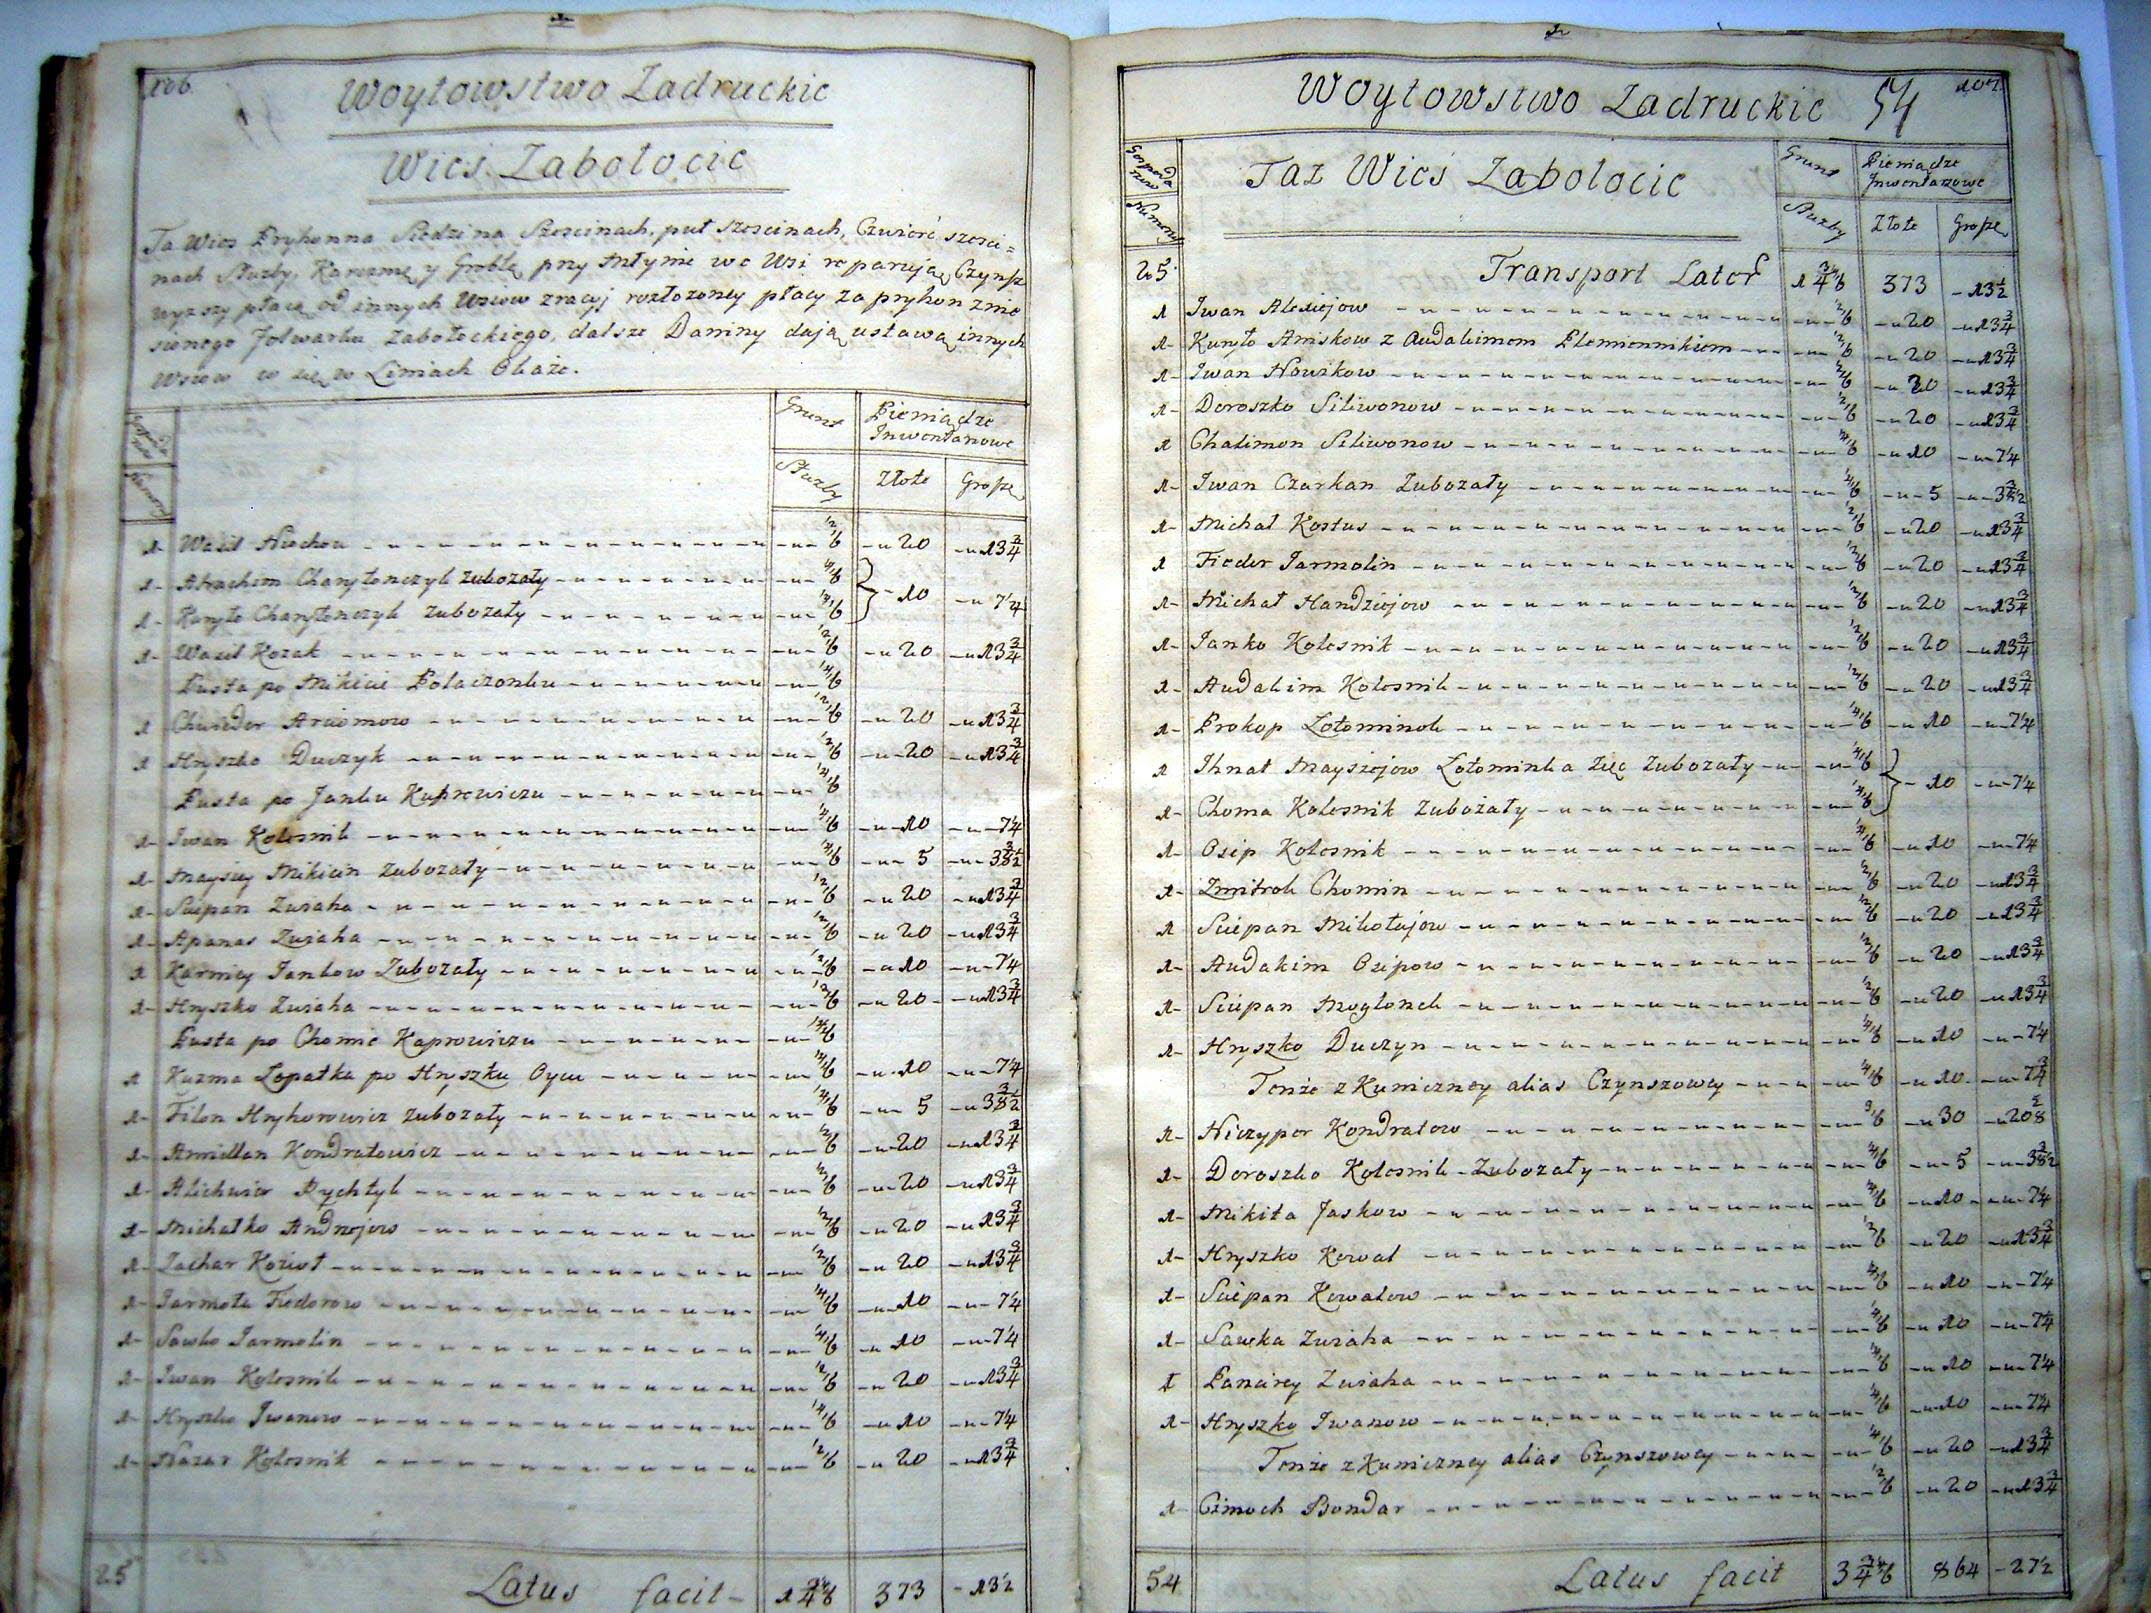 106
Woytowstwo Zadruckie
Wieś Zabołocie
Ta Wies Pryhonna Siedzi na Szescinach, puł szescinach, Czwierć szesci=
nach Służby, Karczmę y Groblę przy Młynie we Wsi reparują, Czynsz
wyższy płacą od innych Wsiow z racyi rozłożoney płacy za pryhon znie
sionego Folwarku Zabołockiego, dalsze Daniny dają ustawą innych
Wsiow w tę w Liniach Obaże.
Gospoda rzow Numery
Grunt Służby
Pieniądze Inwentarzowe
Złote Grosze
1 Wasil 2/6 20 13 3/4
1 Abrachim Charytonczyk zubożały 1/4/6
1 Kuryło Charytonczyk zubożały 1/4/6 10 7 1/4
1 Wasil Kozak 1/2/6 20 13 3/4
Pusta po Mikicie Polaczonku 1/4/6
1 Chwieder Arciomow 1/2/6 20 13 3/4
1 Hryszko Duczyk 1/2/6 20 13 3/4
Pusta po Janku Kaprowiczu 1/4/6
1 Iwan Kolesnik 1/4/6 10 7 1/4
1 Maysiey Mikicin zubożały 1/4/6 5 3 3/8 1/2
1 Sciepan Zusaha 1/2/6 20 13 3/4
1 Apanas Zusaha 1/2/6 20 13 3/4
1 Karniey Jankow Zubożały 1/2/6 10 7 1/4
1 Hryszko Zusaha 1/2/6 20 13 3/4
Pusta po Chomie Kaprowiczu 1/4/6
1 Kuzma Łopatka po Hryszku Oycu 1/4/6 10 7 1/4
1 Filon Hryhorowicz zubożały 1/4/6 5 3 3/8 1/2
1 Amillan Kondratowicz 1/2/6 20 13 3/4
1 Rychłyk 1/2/6 20 13 3/4
1 Michałko Andrejow 1/2/6 20 13 3/4
1 Zachar Kozioł 1/2/6 20 13 3/4
1 Jarmoła Fiedorow 1/4/6 10 7 1/4
1 Sawko Jarmolin 1/4/6 10 7 1/4
1 Iwan Kolesnik 1/2/6 20 13 3/4
1 Hryszko Iwanow 1/4/6 10 7 1/4
1 Nazar Kolesnik 1/2/6 20 13 3/4
25 Latus facit 1 3/4/6 373 13 1/2
Woytowstwo Zadruckie 54 107
Taż Wieś Zabołocie
Gospoda rzow Numery
Grunt Służby
Pieniądze Inwentarzowe
Złote Grosze
25 Transport Later 1 3/4/6 373 13 1/2
1 Iwan Alexiejow 1/2/6 20 13 3/4
1 Kuryło Aniskow z Audakimem Plemiennikiem 1/2/6 20 13 3/4
1 Iwan Nowikow 1/2/6 20 13 3/4
1 Doroszko Siliwonow 1/2/6 20 13 3/4
1 Chalimon Siliwonow 1/4/6 10 7 1/4
1 Iwan Czarkan Zubożały 1/4/6 5 3 3/8 1/2
1 Michał Kostus 1/2/6 20 13 3/4
1 Fieder Jarmolin 1/2/6 20 13 3/4
1 Michał Handziejow 1/2/6 20 13 3/4
1 Janko Kolesnik 1/2/6 20 13 3/4
1 Audakim Kolesnik 1/2/6 20 13 3/4
1 Prokop Łotominok 1/4/6 10 7 1/4
1 Ihnat Maysiejow Łotominka Zięć Zubożały 1/4/6
1 Choma Kolesnik Zubożały 1/4/6 10 7 1/4
1 Osip Kolesnik 1/4/6 10 7 1/4
1 Zmitrok Chomin 2/6 20 13 3/4
1 Sciepan Mikołajow 1/2/6 20 13 3/4
1 Audakim Osipow 1/2/6 20 13 3/4
1 Sciepan 1/2/6 20 13 3/4
1 Hryszko Duczyn 1/4/6 10 7 1/4
Tenże z Kuniczney alias Czynszowey 1/4/6 10 7 3/4
1 Niczyper Kondratow 3/6 30 20 5/8
1 Doroszko Kolesnik Zubożały 1/4/6 5 3 3/8 1/2
1 Mikita Jaskow 1/4/6 10 7 1/4
1 Hryszko Kowal 1/2/6 20 13 3/4
1 Sciepan Kowalow 1/4/6 10 7 1/4
1 Sawka Zusaha 1/4/6 10 7 1/4
1 Panarey Zusaha 1/4/6 10 7 1/4
1 Hryszko Iwanow 1/4/6 10 7 1/4
Tenże z Kuniczney alias Czynszowey 1/4/6 20 13 3/4
1 Cimoch Bondar 1/2/6 20 13 3/4
54 Latus facit 3 3/4/6 864 27 1/2